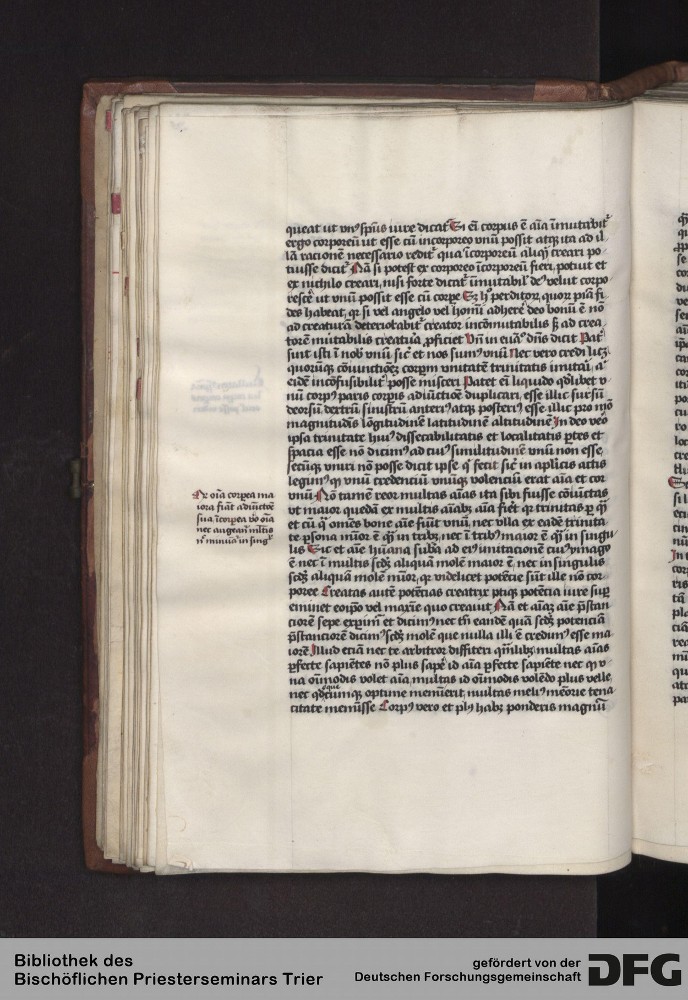 queat ut vnꝰ spūs iure dicat᷑ Si em̄ corpus ē aīa īmutabit᷑
ergo corporeū ut esse cū incorporeo vnū possit atqꝫ ita ad il
lā racionem necessario redit᷑ qua īcorporeū aliqͥ creari po
tuisse dicit᷑ Nā si potest ex corporeo īcorporeū fieri potuit et
ex nichilo creari, nisi forte dicat᷑ īmutabilē deū velut corpo
rescē ut vnū possit esse cū corpe
des habeat, qꝛ si vel angelo vel homī adherē deo bonū ē nō
ad creaturā deteriorabit᷑ creator incōmutabilis sꝫ ad crea
torē mutabilis creatura ꝓficiet Vn̄ in euāº dn̄s dicit Pat᷑
sunt isti ī nob̄ vnū sic᷑ et nos sumꝰ vnū Nec vero credi licꝫ
quorūqꝫ cōiunctiōeꝫ corpm̄ vnitatē trinitatis imitari, a᷑
eidē incōfusibilit᷑ posse misceri Patet em̄ liquido qdlibet v
nū corpꝰ paris corpis adiūctiōe duplicari, esse illic sursū
deorsū dextrū sinistrū anteriꝰ atqꝫ posteriꝰ esse illic pro mō
magnitudīs lōgitudinē latitudinē altitudinē In deo veō
ipsa trinitate huiꝰ dissecabilitatis et localitatis ꝑtes et
spacia esse nō dicimꝰ ad cuiꝰ similitudinē vnū non esse,
seciūqꝫ vniri nō posse dicit ipse qͥ fecit sic᷑ in apl̄icis actis
legimꝰ qꝛ vnū credenciū vniūqꝫ volenciū erat aīa et cor
vnū Nō tamē reor multas aīas ita sibi fuisse cōiūctas
vt maior quedā ex multis aīabꝫ aīa fiet᷑ qꝛ trinitas
et cū qͥ omēs bone aīe fiūt vnū, nec vlla ex eadē trinita
te ꝑsona mīor ē qͣ in tribꝫ, nec ī tribꝰ maior ē qͣ in singu
lis Sic et aīe hūana suba ad eiꝰ imitacionē cuiꝰ ymago
ē nec ī multis scdꝫ aliquā molē maior ē, nec in singulis
scdꝫ aliquā molē mīor, qꝛ videlicet potēcie sūt ille nō cor
poree Creatas autē potēcias creatrix ptiqꝫ potēcia iure suꝑ
eminet eoipo vel maxīe quo creauit Nā et aīaꝫ aīe p̄stan
ciorē sepe expimꝰ et dicimꝰ nec tn̄ eandē quā scdꝫ potenciā
p̄stanciorē dicimꝰ scdꝫ molē que nulla illi ē credimꝰ esse ma
iorē Illud eciā nec te arbitror diffiteri qm̄libꝫ multas aīas
ꝑfecte sapiētes nō plus sapē id aīa ꝑfecte sapiēte nec qꝛ v
na oīmodis volet aīa, multas id oīmodis volēdo plus velle,
nec qdcūqꝫ optime memīerit, multas meliꝰ mēorie tena
citate memīsse Corpꝰ vero et plꝰ habꝫ ponderis magnū
Qꝛ oīa corpea ma
iora fiāt adiūctōe
sua, īcorpea vō oīa
nec augeāt᷑ ī mltis
nͬ minuāt᷑ in singͭ
Bibliothek des
Bischöflichen Priesterseminars Trier
gefördert von der
Deutschen Forschungsgemeinschaft
DFG